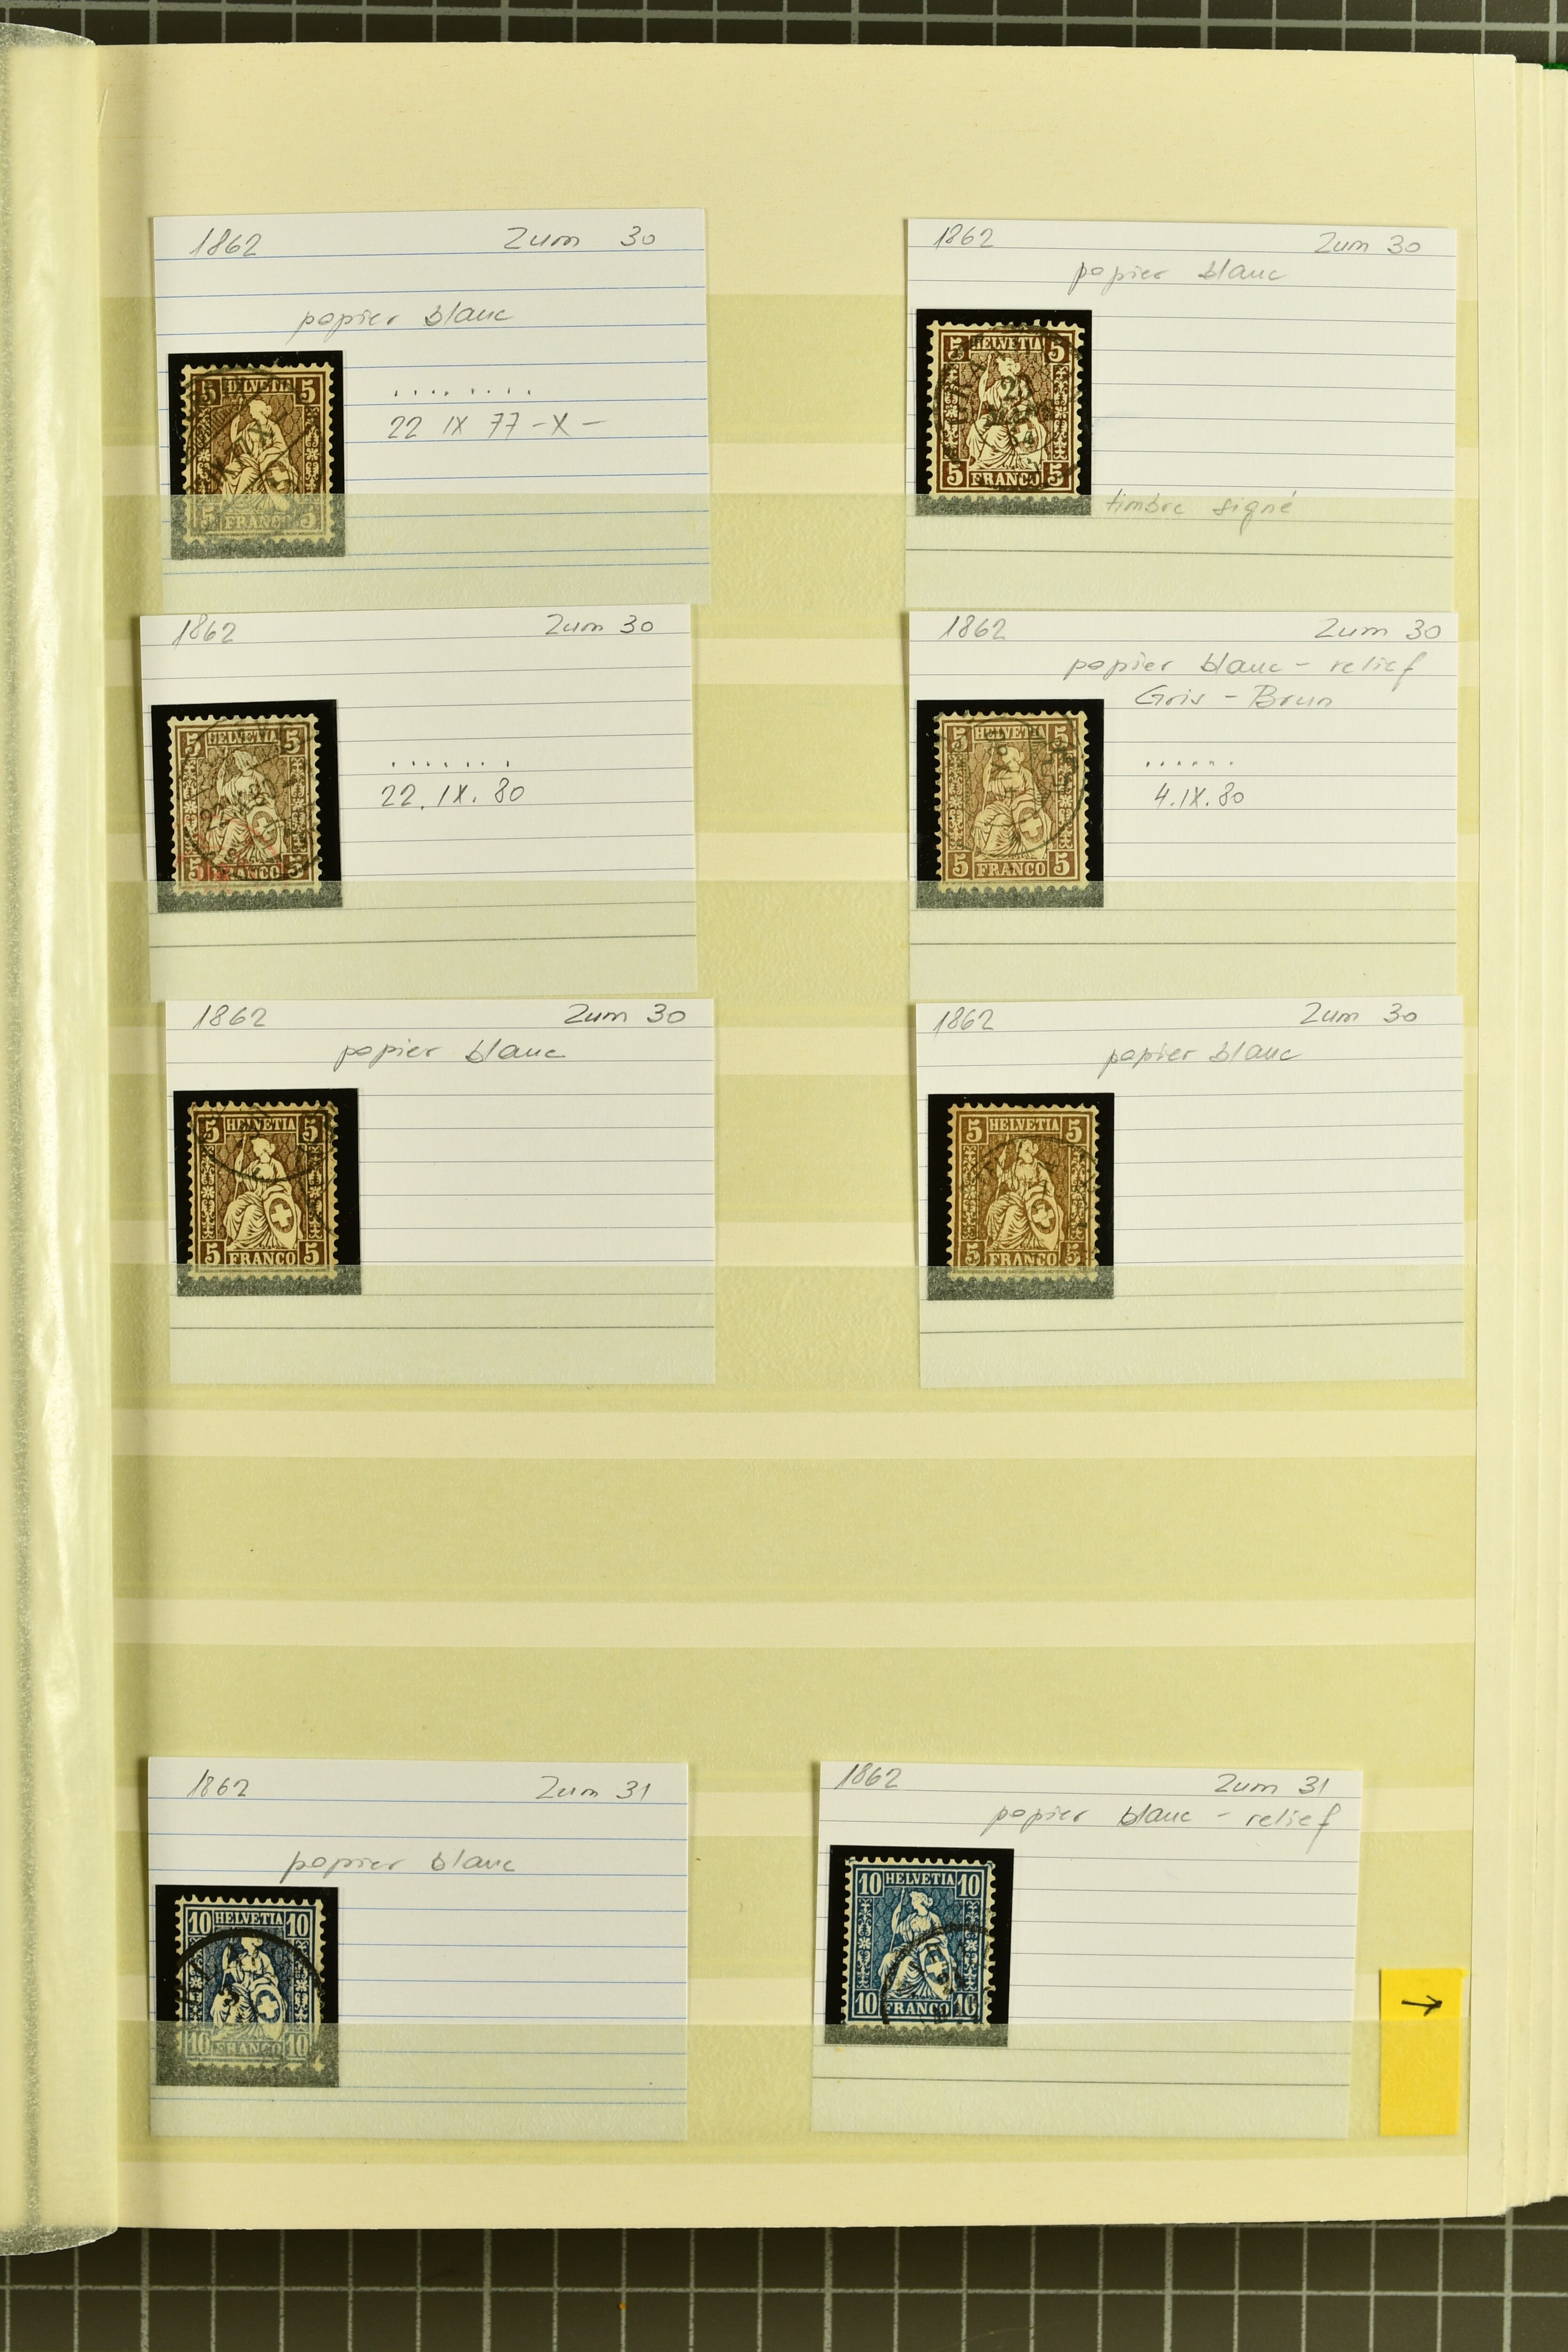 1862 Zum 30
papier blanc
5 HELVETIA 5
. . . . . . . . .
22 IX 77 - X -
5 FRANCO 5
1862 Zum 30
papier blanc
5 HELVETIA 5
5 FRANCO 5
timbre signé
1862 Zum 30
5 HELVETIA 5
. . . . . . .
22. IX. 80
5 FRANCO 5
1862 Zum 30
papier blanc - relief
Gris - Brun
5 HELVETIA 5
. . . . . .
4. IX. 80
5 FRANCO 5
1862 Zum 30
papier blanc
5 HELVETIA 5
5 FRANCO 5
1862 Zum 30
papier blanc
5 HELVETIA 5
5 FRANCO 5
1862 Zum 31
papier blanc
10 HELVETIA 10
10 FRANCO 10
1862 Zum 31
papier blanc - relief
10 HELVETIA 10
10 FRANCO 10
→